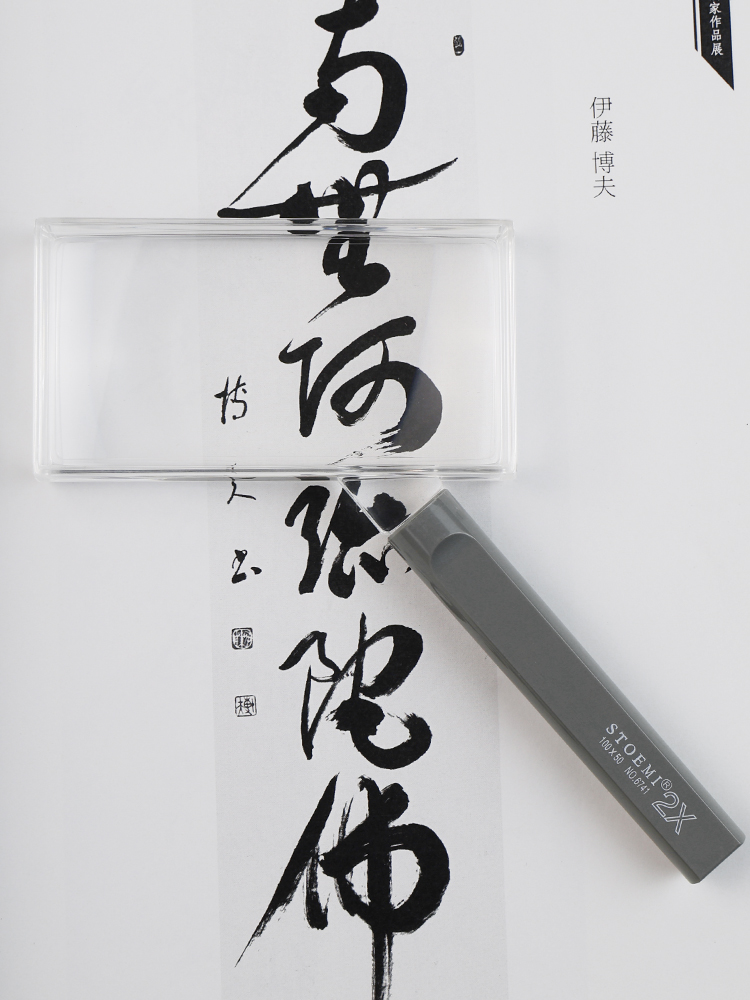 家作品展
伊藤 博夫
南無阿弥陀佛
博夫書
STOEMI®
100X50 NO.6741
2X